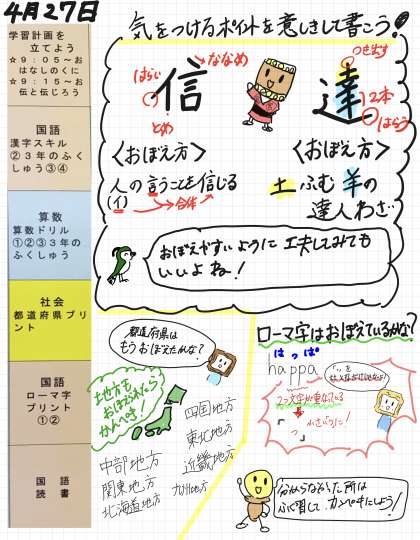 4月27日
学習計画を
立てよう
☆9:05~お
はなしのくに
☆9:15~お
伝と伝じろう
国語
漢字スキル
②3年のふく
しゅう③④
算数
算数ドリル
①②③3年の
ふくしゅう
社会
都道府県プリ
ント
国語
ローマ字
プリント
①②
国語
読書
気をつけるポイントを意しきして書こう!
ななめ
はらい
信
とめ
つき出す
達
2本
はらう
〈おぼえ方〉
人の言うことを信じる
(イ)
合体
〈おぼえ方〉
土ふむ羊の
達人わざ
おぼえやすいように工夫してみても
いいよね!
都道府県は
もうおぼえたかな?
地方も
おぼえられたら
かんぺき!
四国地方
東北地方
中部地方
近畿地方
関東地方
九州地方
北海道地方
ローマ字はおぼえているかな?
はっぱ
happa
2つ文字が重なっている
小さい「っ」に!
分からなかった所は
ふく習して、カンペキにしよう!